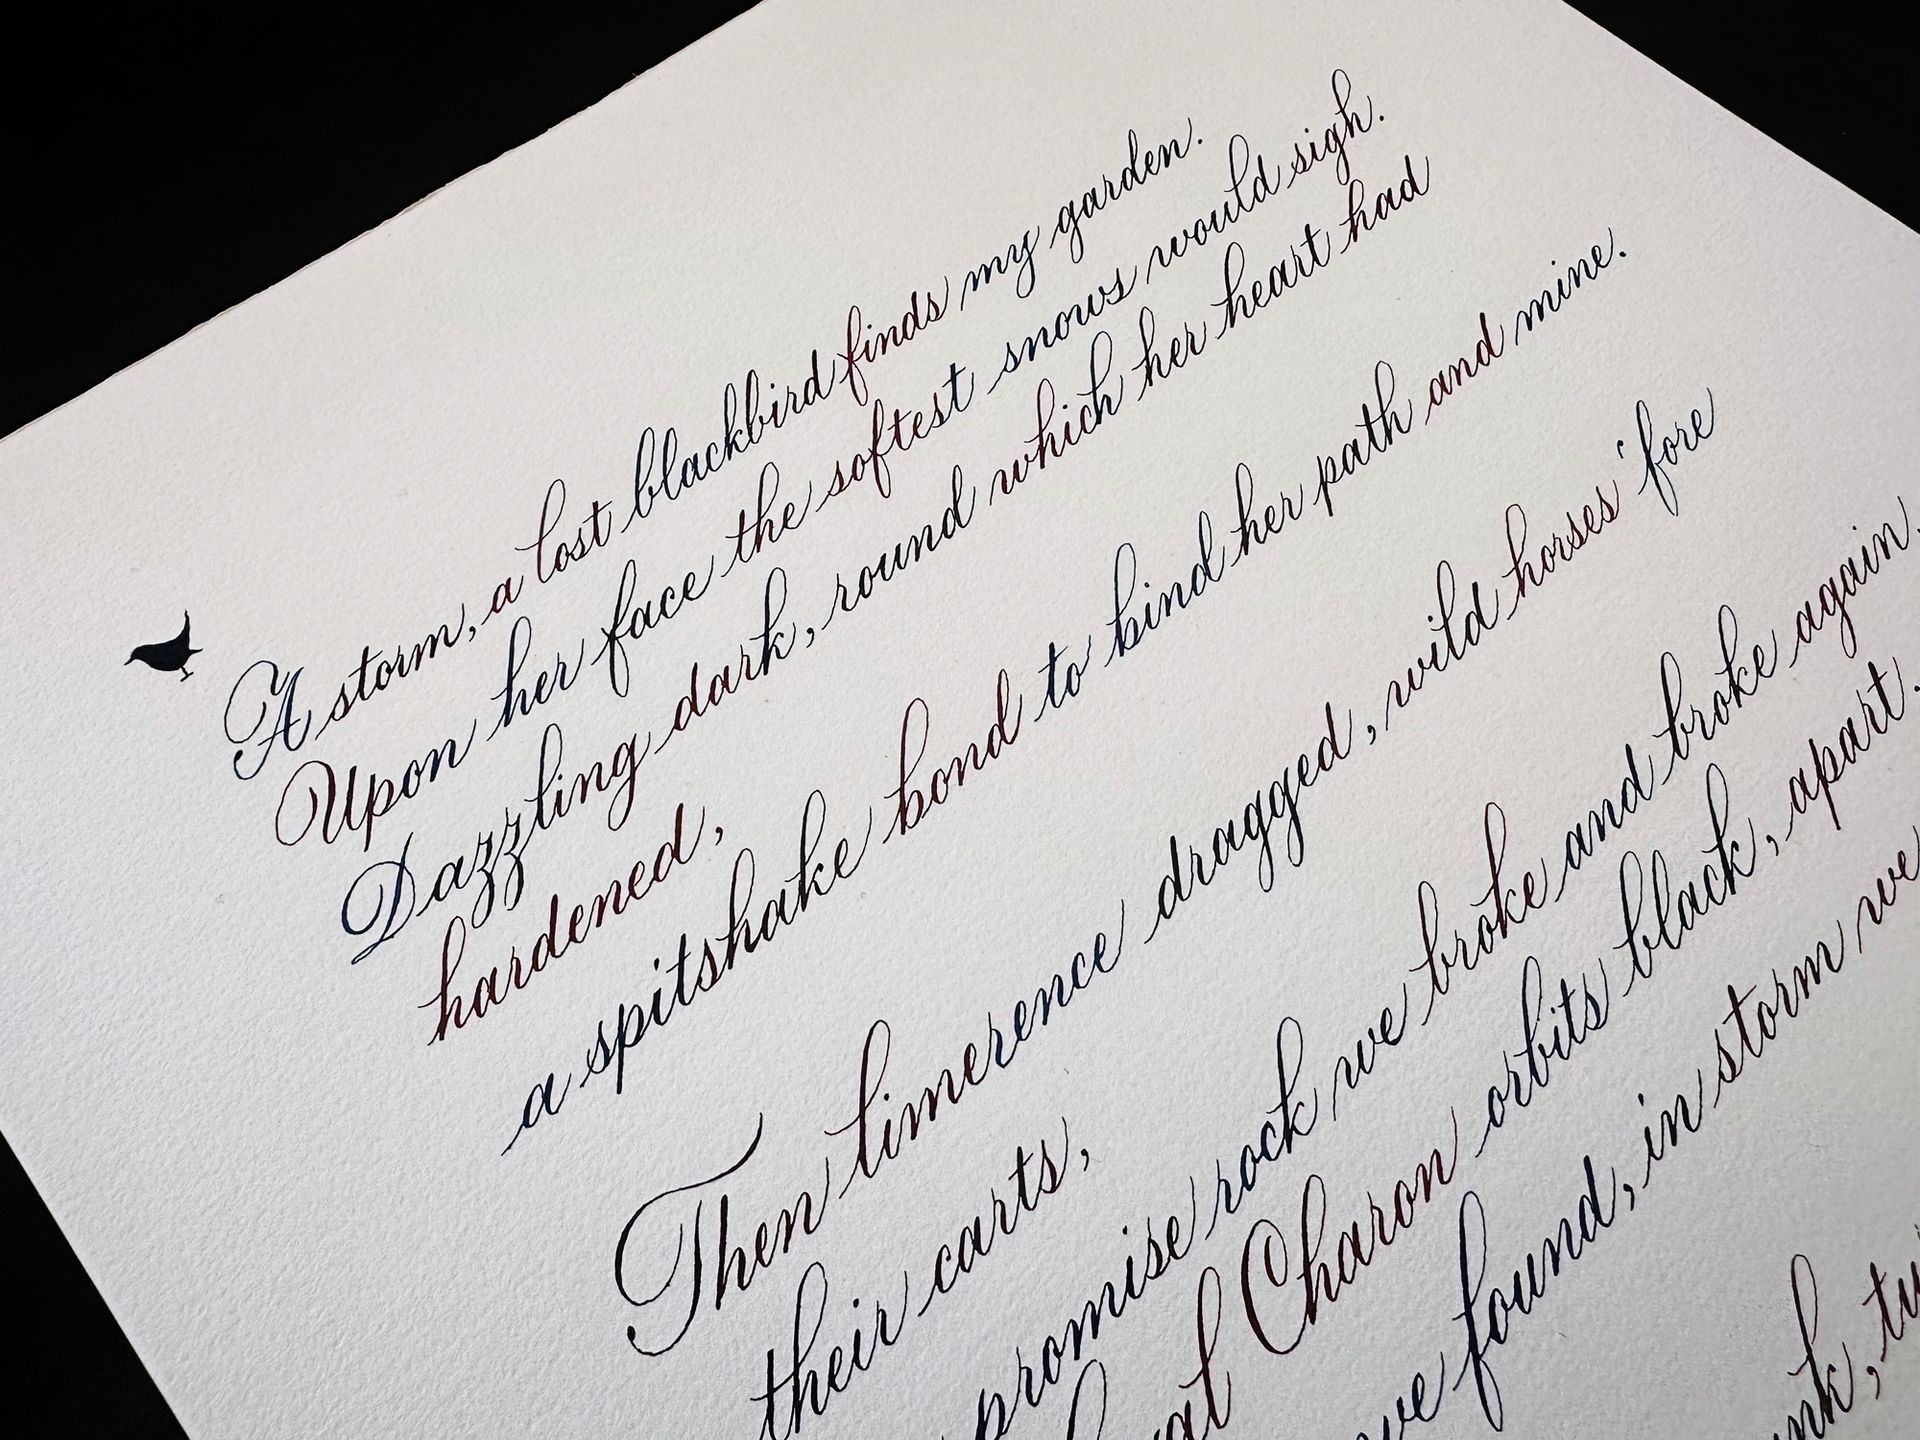 A storm, a lost blackbird finds my garden.
Upon her face the softest snows would sigh.
Dazzling dark, round which her heart had
hardened,
a spitshake bond to bind her path and mine.
Then limerence dragged, wild horses 'fore
their carts,
promise rock we broke and broke again,
Charon orbits black, apart.
we found, in storm we